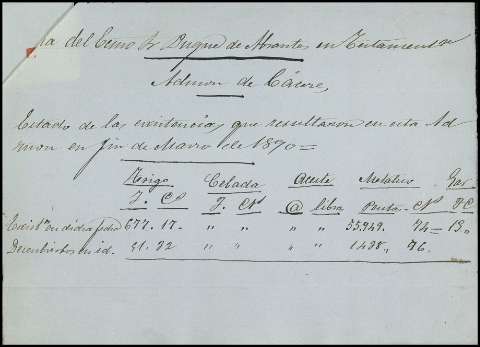 ia del Exmo Sr Duque de Abrantes en Testamento
Admon de Cácere,
Estado de las existencias que resultaron en esta Ad
mon en fin de Marzo de 1870=
Trigo Cebada Aceite Metalico Gar
F. Cs F. Cs @ libra Pesetas Cs F C
Exist.s en dicha fecha 677. 17. " " " " 55.949. 74= 13,,
Descubiertos en id. 51. 22 " " " " 1498,, 76.